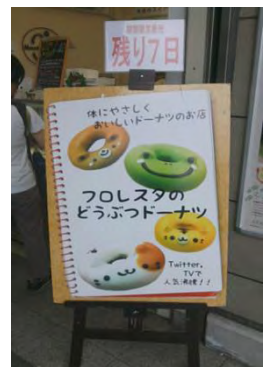 残り7日
体にやさしく
おいしいドーナツのお店
フロレスタの
どうぶつドーナツ
Twitter,
TVで
人気沸騰!!